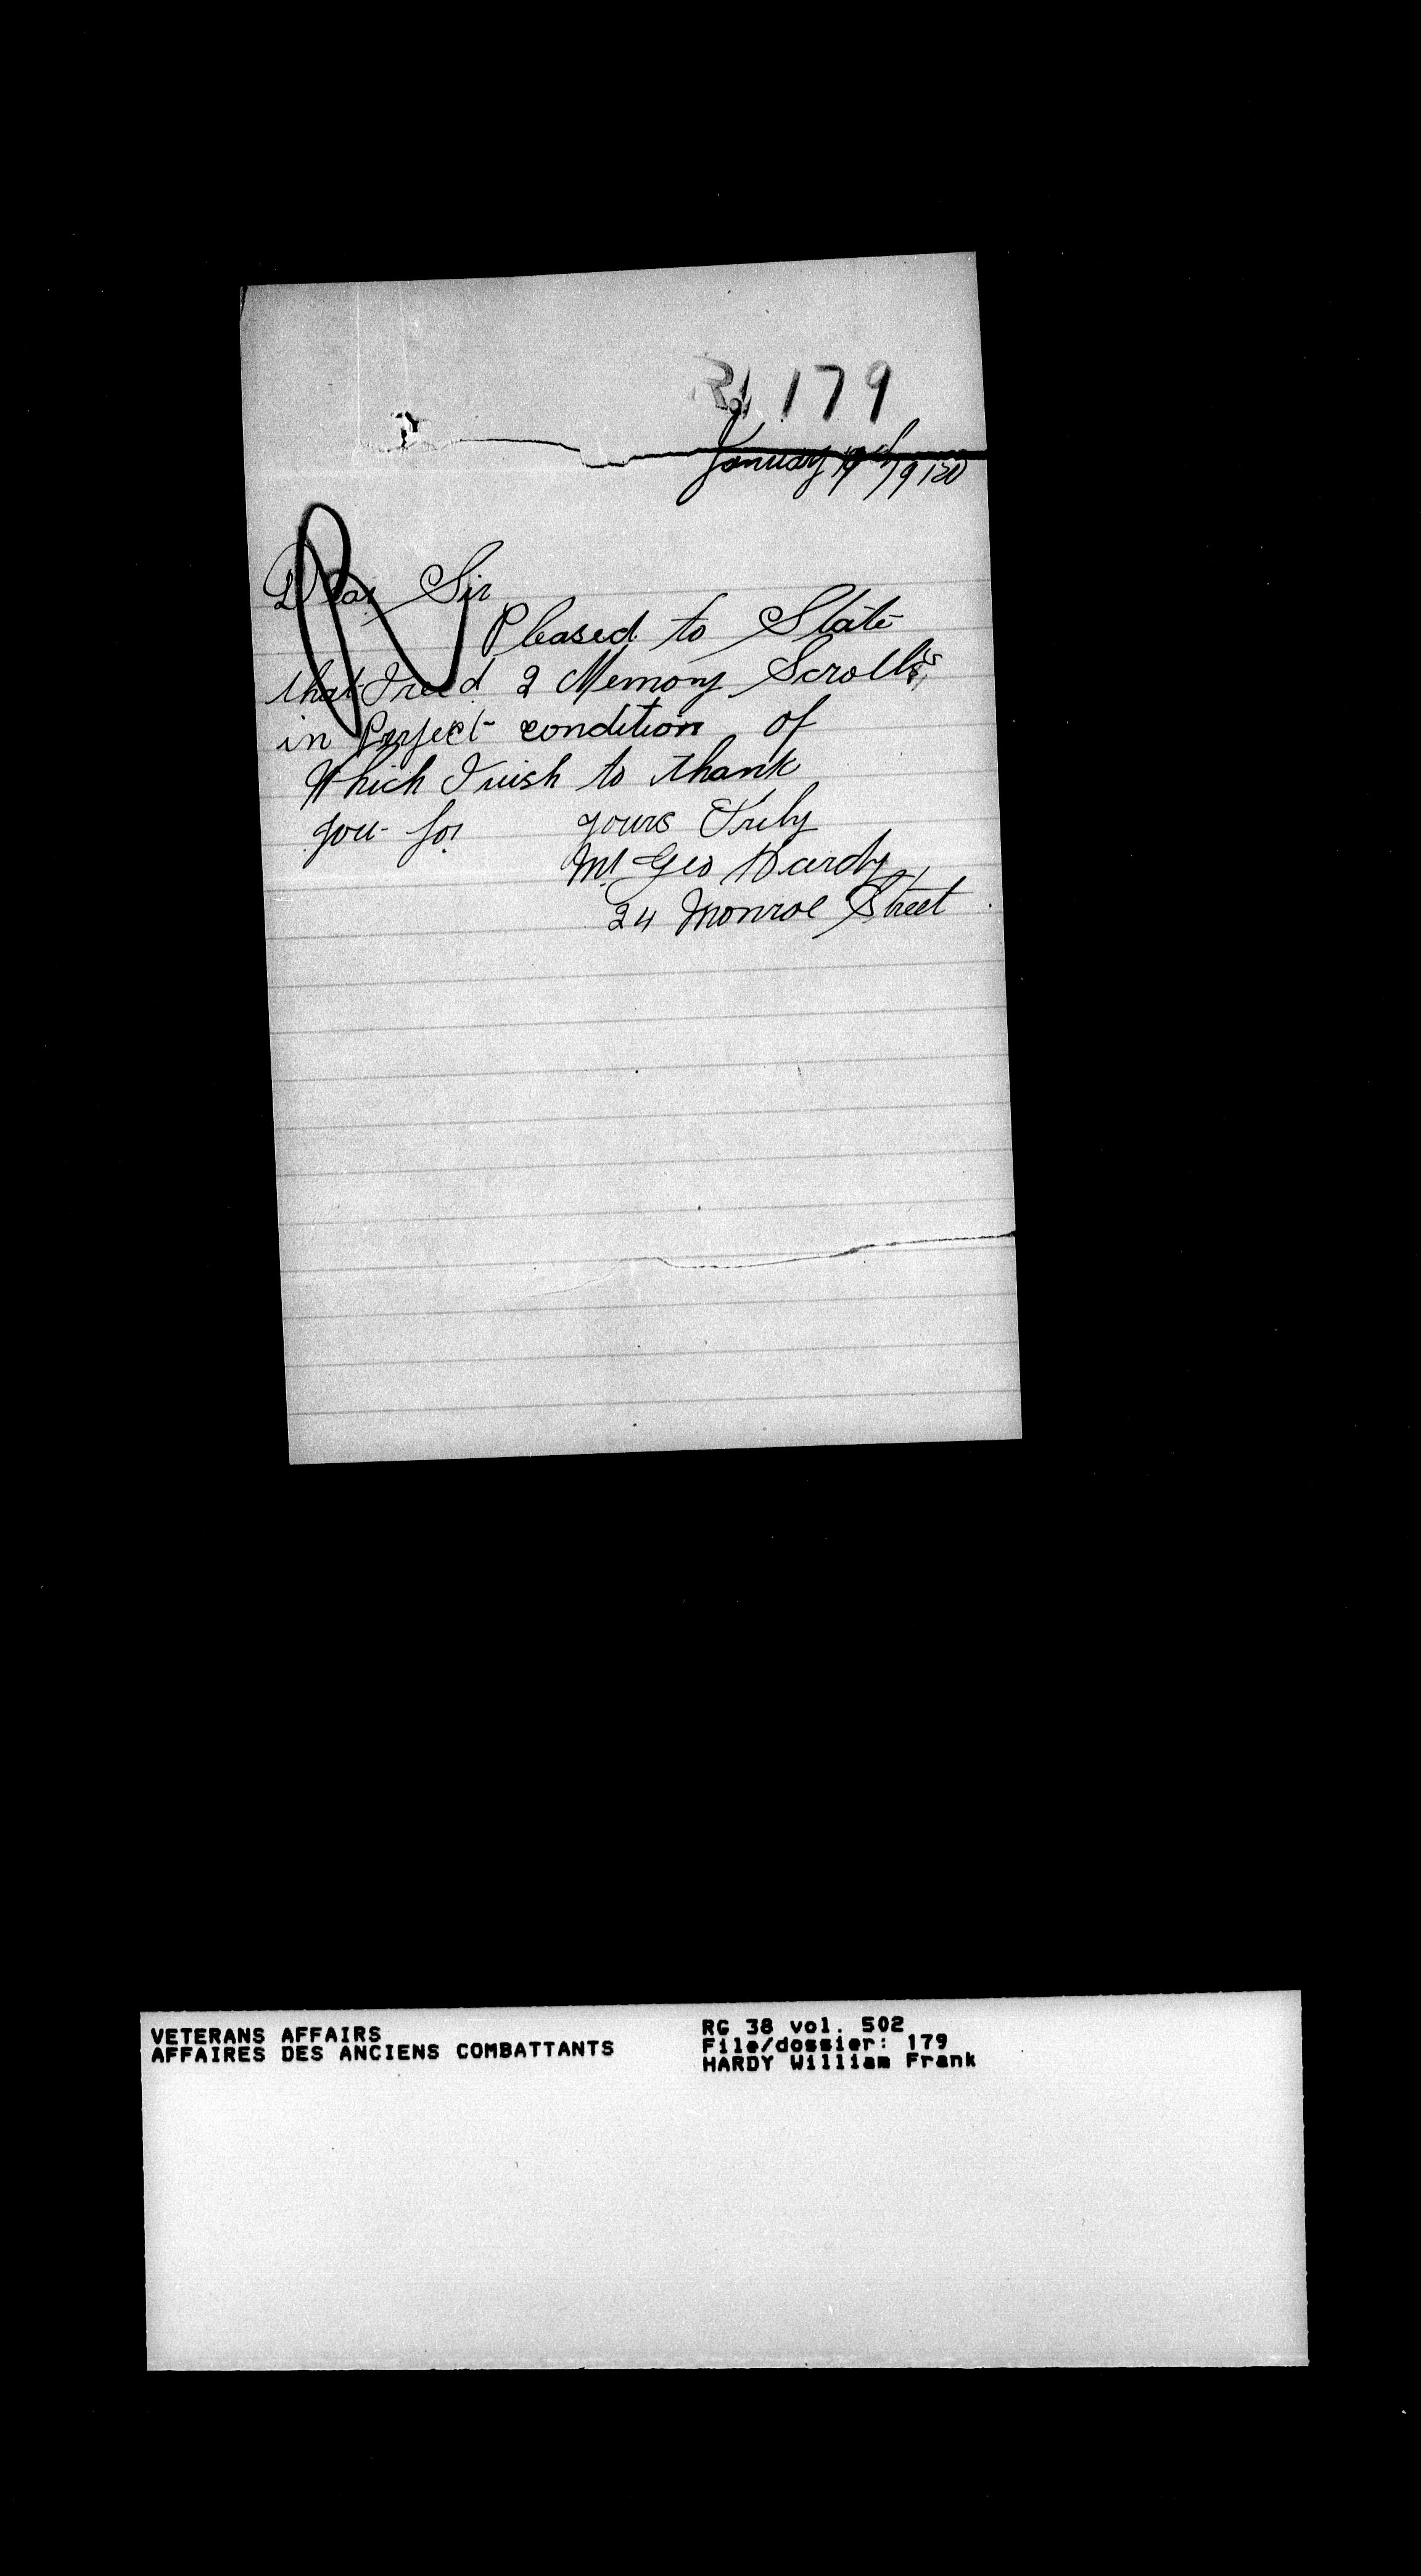 R. 179
January 19th 1920
Dear Sir
Pleased to State
that I rec'd 2 Memory Scrolls
in Perfect condition of
Which I wish to thank
you for yours Truly
Mr Geo Hardy
24 Monroe Street
VETERANS AFFAIRS
AFFAIRES DES ANCIENS COMBATTANTS
RG 38 vol. 502
File/dossier: 179
HARDY William Frank